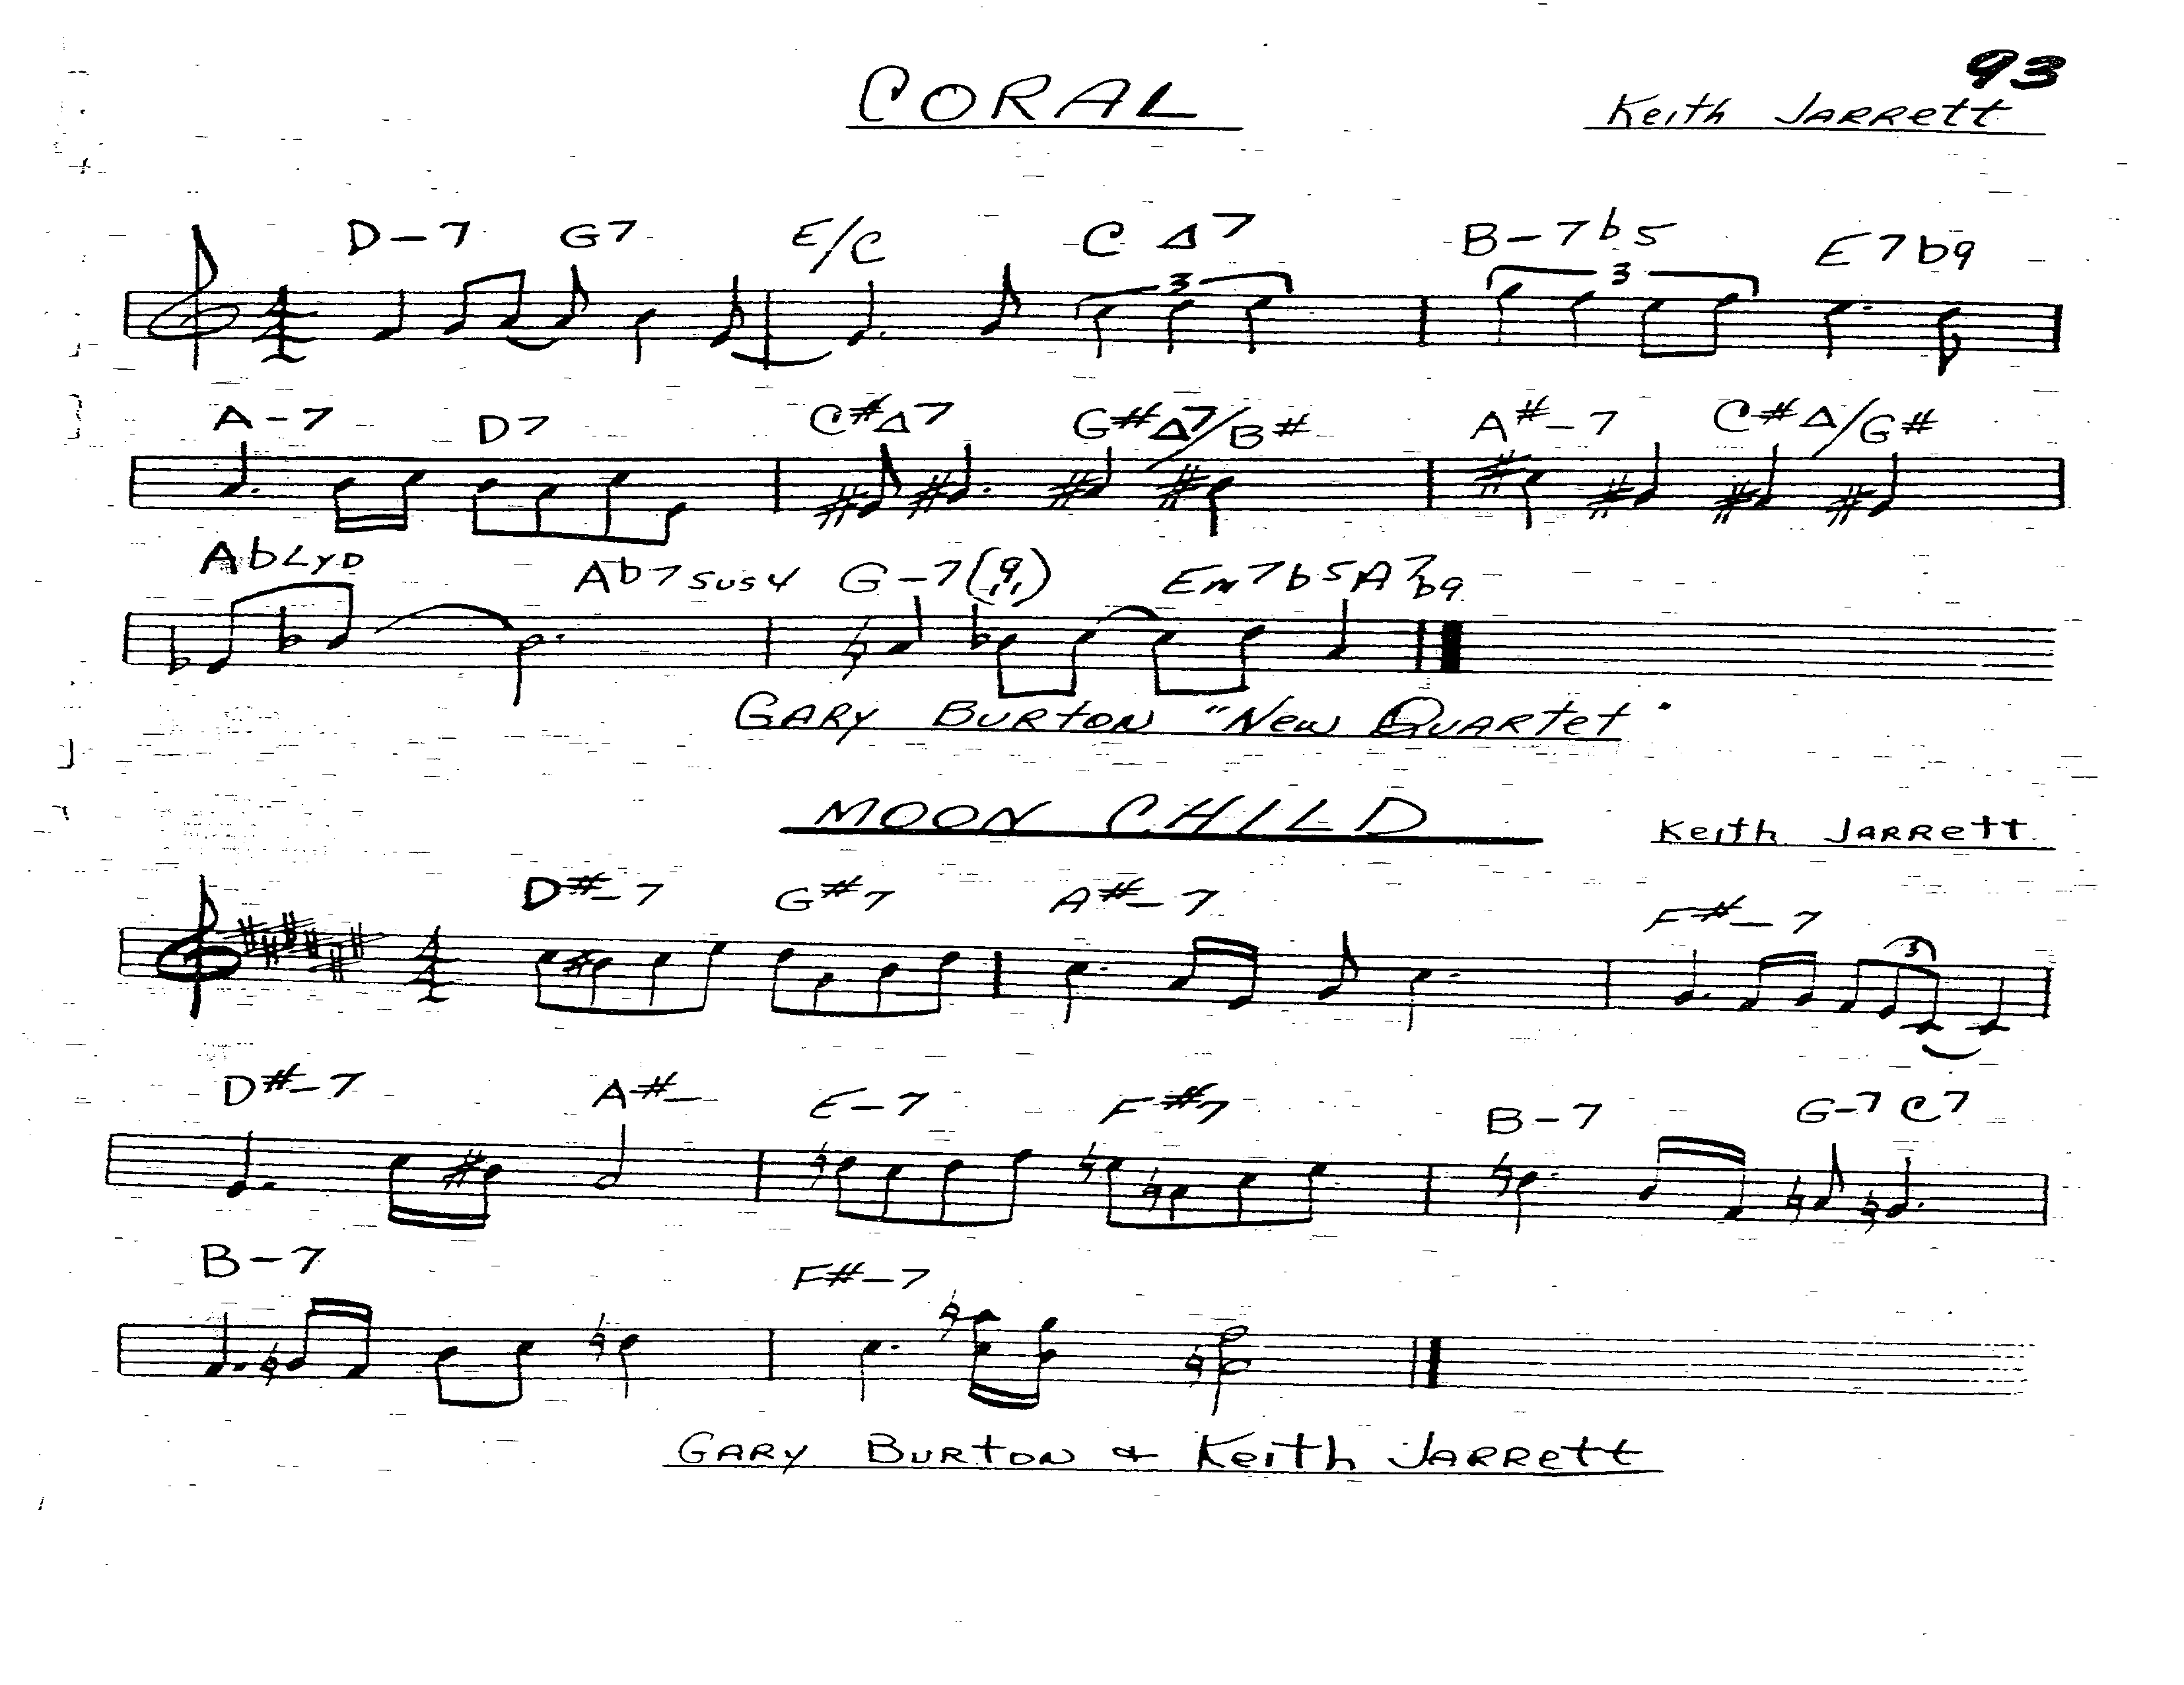 93
CORAL
Keith Jarrett
D-7 G7 E/C C Δ7 B-7b5 E7b9
3 3
A-7 D7 C#Δ7 G#Δ7/B# A#-7 C#Δ/G#
AbLYD Ab7sus4 G-7(9,11) Em7b5 A7b9
GARY BURTON "New QUARTET"
MOON CHILD Keith JARRett
D#-7 G#7 A#-7 F#-7
3
D#-7 A#- E-7 F#7 B-7 G-7 C7
B-7 F#-7
GARY BURTON & Keith JARRett